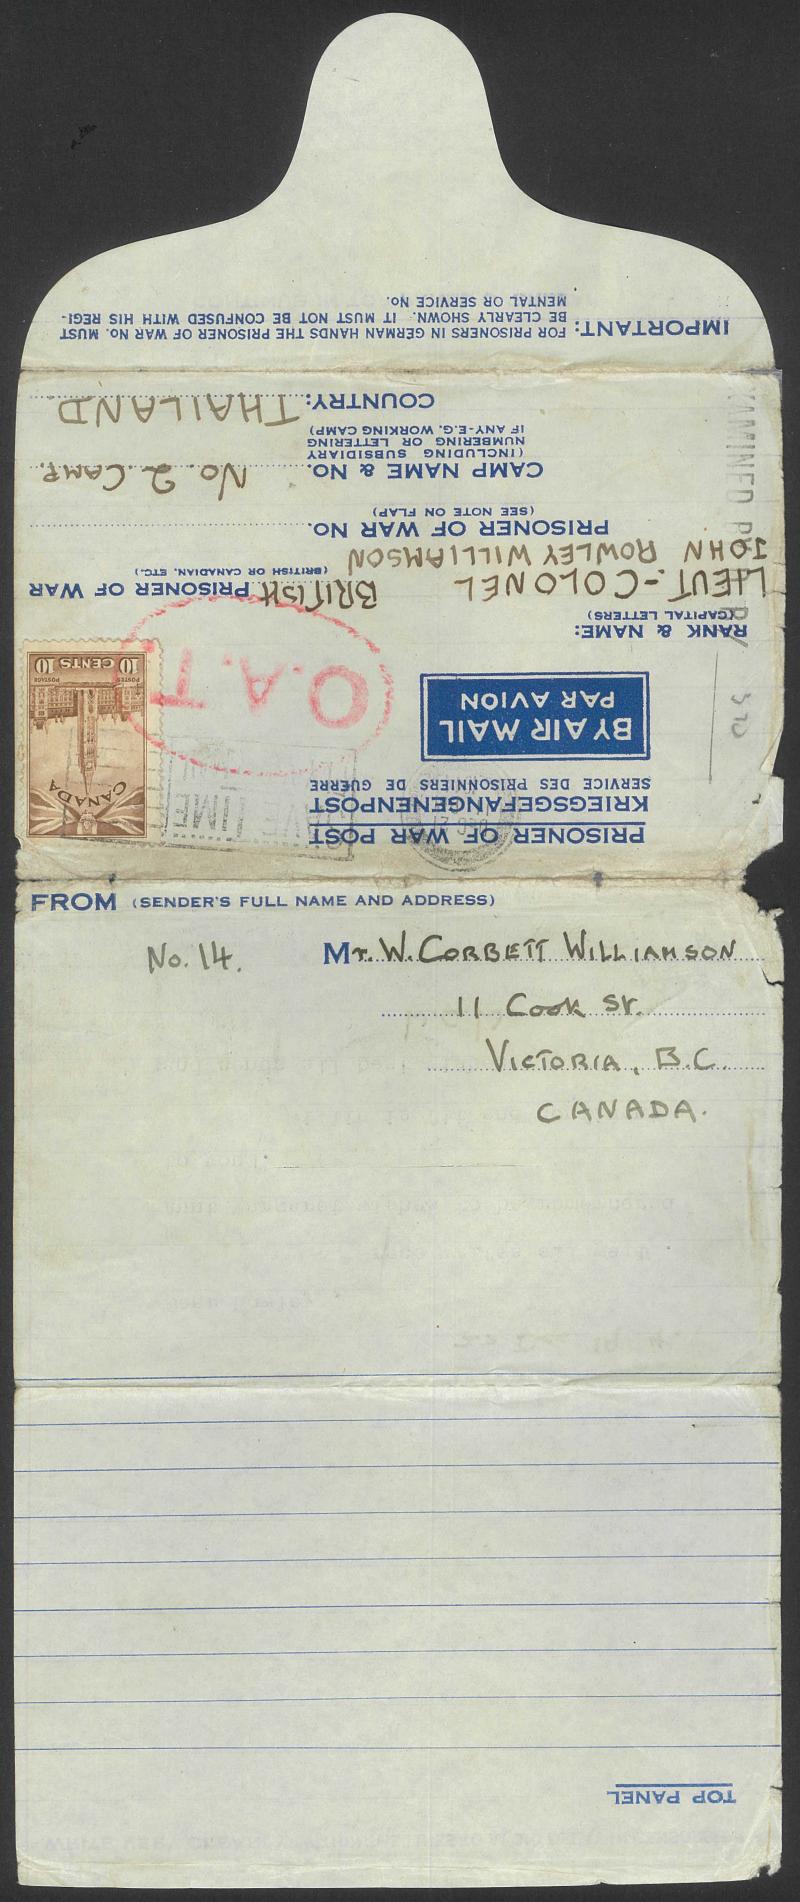 IMPORTANT: FOR PRISONERS IN GERMAN HANDS THE PRISONER OF WAR No. MUST
BE CLEARLY SHOWN. IT MUST NOT BE CONFUSED WITH HIS REGI-
MENTAL OR SERVICE No.
PRISONER OF WAR POST
KRIEGSGEFANGENENPOST
SERVICE DES PRISONNIERS DE GUERRE
BY AIR MAIL
PAR AVION
DEC 21
TIME
CANADA
POSTES POSTAGE
10 CENTS 10
O.A.T.
RANK & NAME:
(CAPITAL LETTERS)
LIEUT-COLONEL BRITISH PRISONER OF WAR
(BRITISH OR CANADIAN, ETC.)
JOHN ROWLEY WILLIAMSON
PRISONER OF WAR No.
(SEE NOTE ON FLAP)
CAMP NAME & No. No. 2 CAMP,
(INCLUDING SUBSIDIARY
NUMBERING OR LETTERING
IF ANY-E.G. WORKING CAMP)
COUNTRY: THAILAND
FROM (SENDER'S FULL NAME AND ADDRESS)
No. 14. Mr. W. CORBETT WILLIAMSON
11 COOK ST.
VICTORIA, B.C.
CANADA.
TOP PANEL